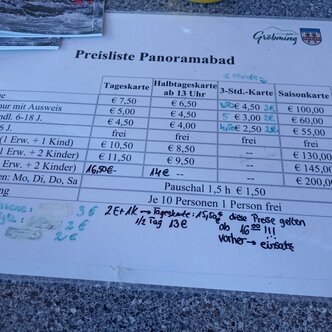 Gröbming
Preisliste Panoramabad
Tageskarte Halbtageskarte ab 13 Uhr 3-Std.-Karte Saisonkarte
€ 7,50 € 6,50 € 4,50 3€ € 100,00
nur mit Ausweis € 5,00 € 4,00 5 € 3,00 2€ € 60,00
ndl. 6-18 J. € 4,50 € 4,00 € 2,50 2€ € 55,00
6 J. frei frei frei frei
(1 Erw. + 1 Kind) € 10,50 € 8,50 -- € 130,00
1 Erw. + 2 Kinder) € 11,50 € 9,50 -- € 145,00
Erw. + 2 Kinder) 16,50€ 14€ -- € 200,0
en: Mo, Di, Do, Sa Pauschal 1,5 h € 1,50
ng Je 10 Personen 1 Person frei
3€
2€
2€
2E+1K → Tageskarte: 15,50€
1/2 Tag 13€
diese Preise gelten
ab 16:00 !!!
vorher →